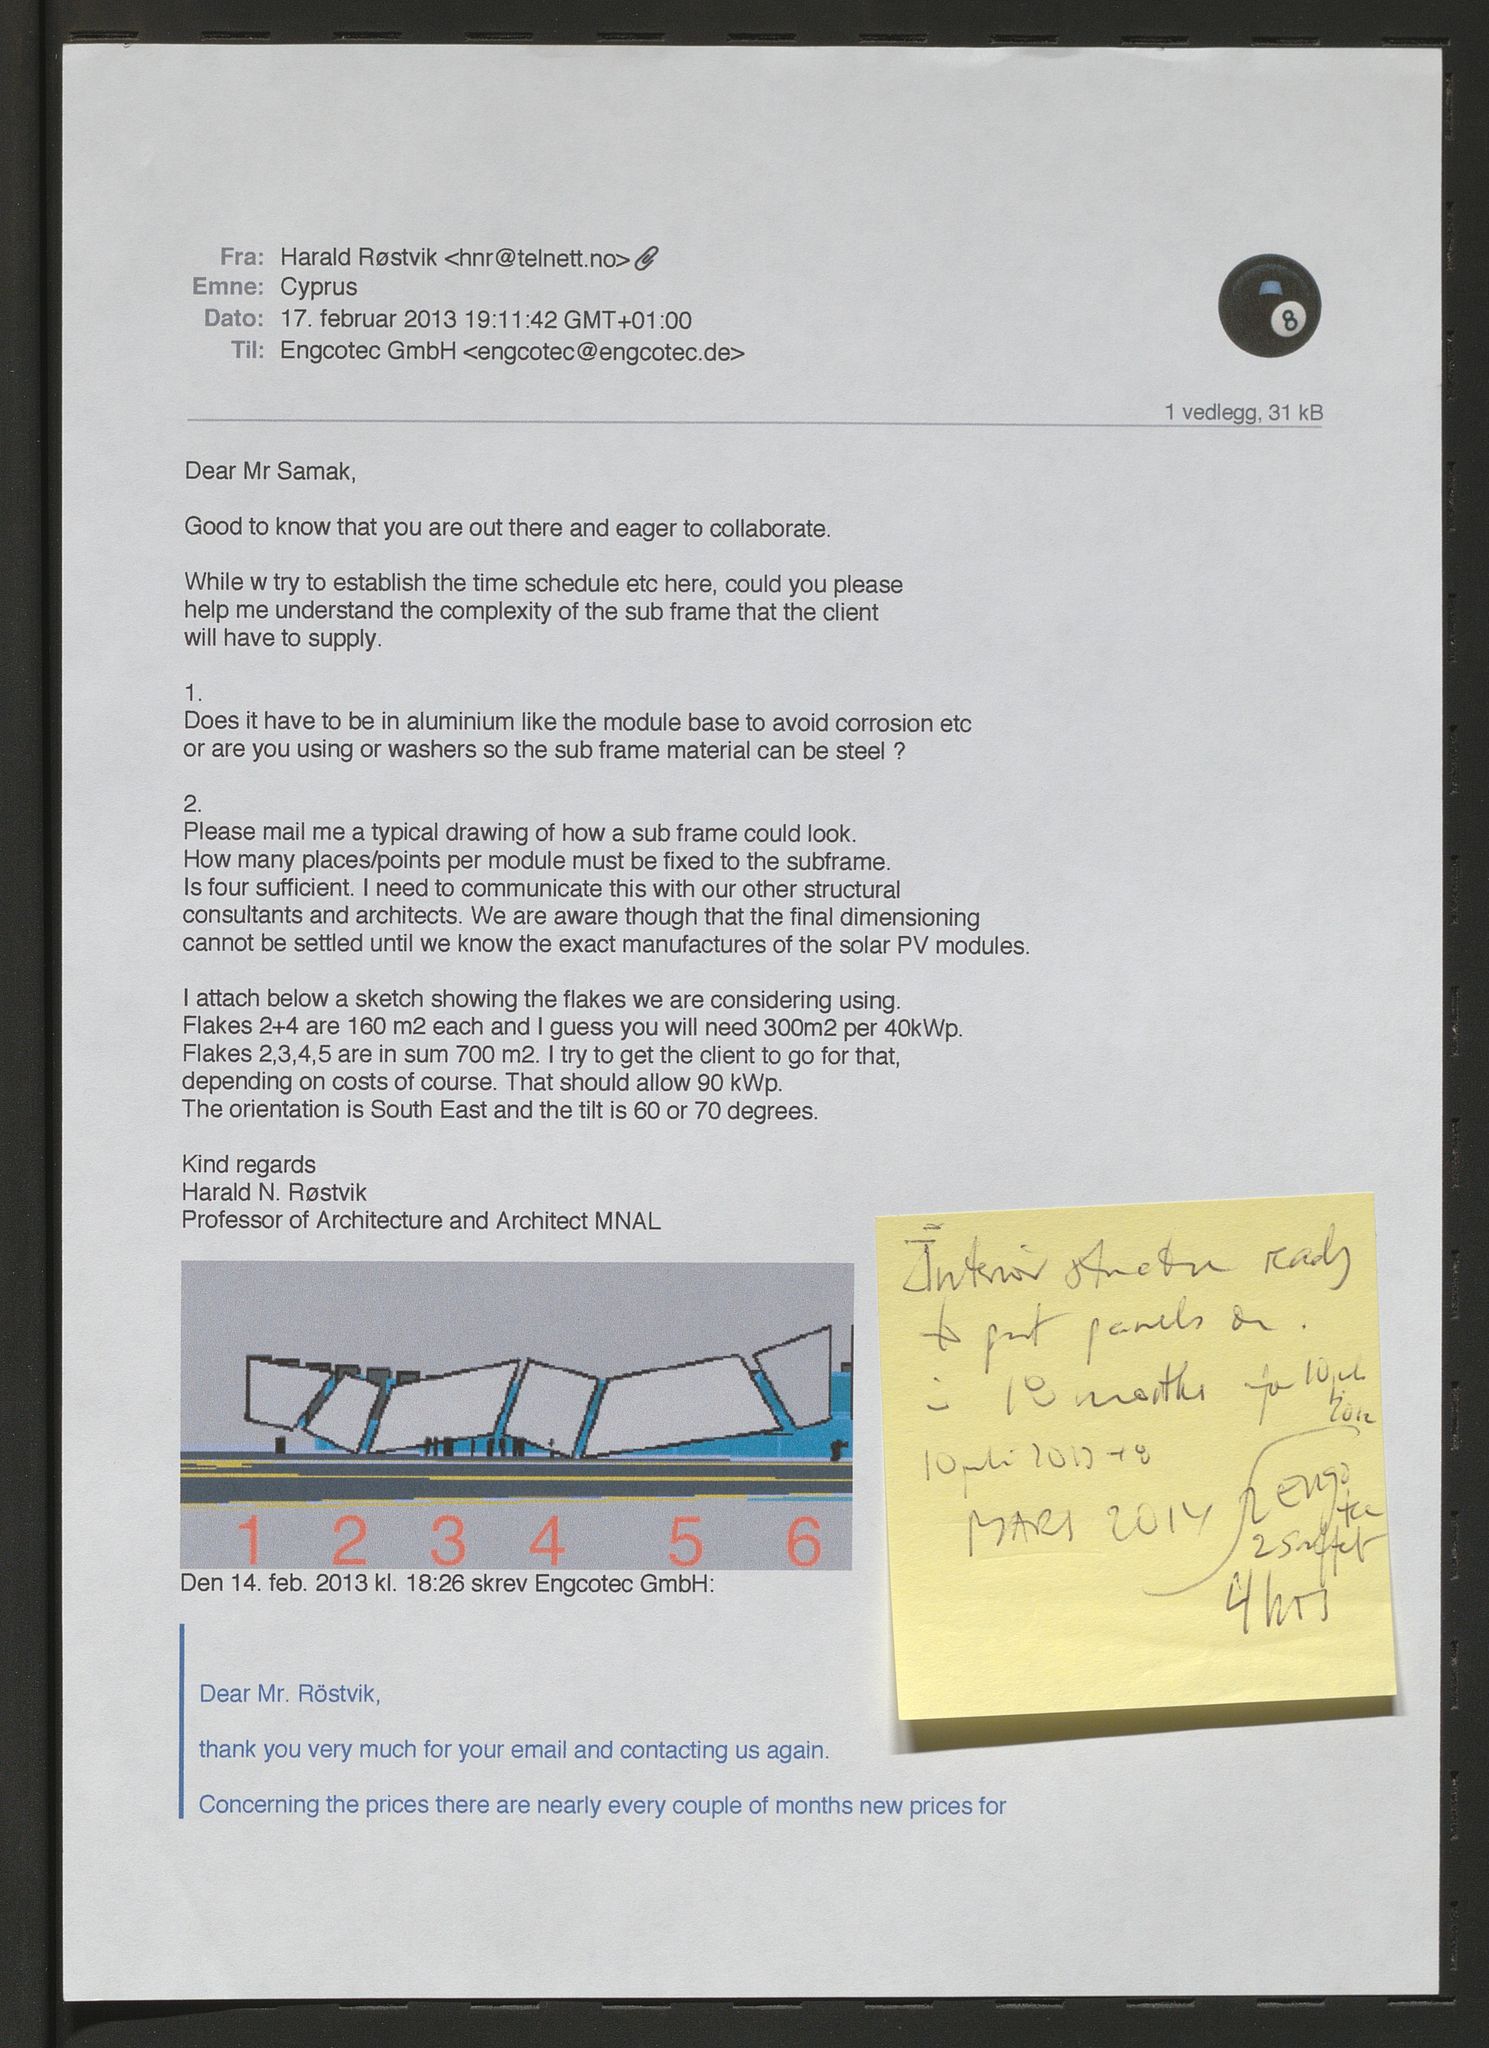 Fra: Harald Røstvik <hnr@telnett.no>
Emne: Cyprus
Dato: 17. februar 2013 19:11:42 GMT+01:00
Til: Engcotec GmbH <engcotec@engcotec.de>
8
1 vedlegg, 31 kB
Dear Mr Samak,
Good to know that you are out there and eager to collaborate.
While w try to establish the time schedule etc here, could you please
help me understand the complexity of the sub frame that the client
will have to supply.
1.
Does it have to be in aluminium like the module base to avoid corrosion etc
or are you using or washers so the sub frame material can be steel ?
2.
Please mail me a typical drawing of how a sub frame could look.
How many places/points per module must be fixed to the subframe.
Is four sufficient. I need to communicate this with our other structural
consultants and architects. We are aware though that the final dimensioning
cannot be settled until we know the exact manufactures of the solar PV modules.
I attach below a sketch showing the flakes we are considering using.
Flakes 2+4 are 160 m2 each and I guess you will need 300m2 per 40kWp.
Flakes 2,3,4,5 are in sum 700 m2. I try to get the client to go for that,
depending on costs of course. That should allow 90 kWp.
The orientation is South East and the tilt is 60 or 70 degrees.
Kind regards
Harald N. Røstvik
Professor of Architecture and Architect MNAL
1 2 3 4 5 6
Interior structure ready
to put panels on.
18 months
10 juli
MARS 2014
4 hrs
Den 14. feb. 2013 kl. 18:26 skrev Engcotec GmbH:
Dear Mr. Röstvik,
thank you very much for your email and contacting us again.
Concerning the prices there are nearly every couple of months new prices for